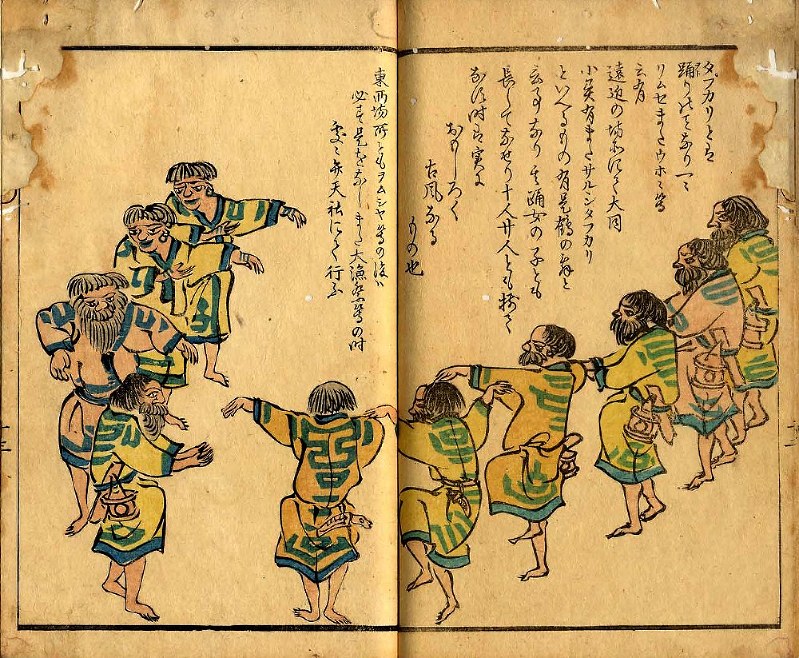 タフカリとは
踊りのことなり一ニ
リムセまたウホホ等
云有
遠近の場所にて大同
小異有またサルシンタフカリ
といへるもの有是鶴の舞と
云事なり其踊女の子とも
長して為せり十人廿人とも揃て
なす時は実に
おもしろく
古風なる
もの也
東西場所ともヲムシヤ等の後ハ
必す是をなしまた大漁祭等の時
処々弁天社にて行ふ